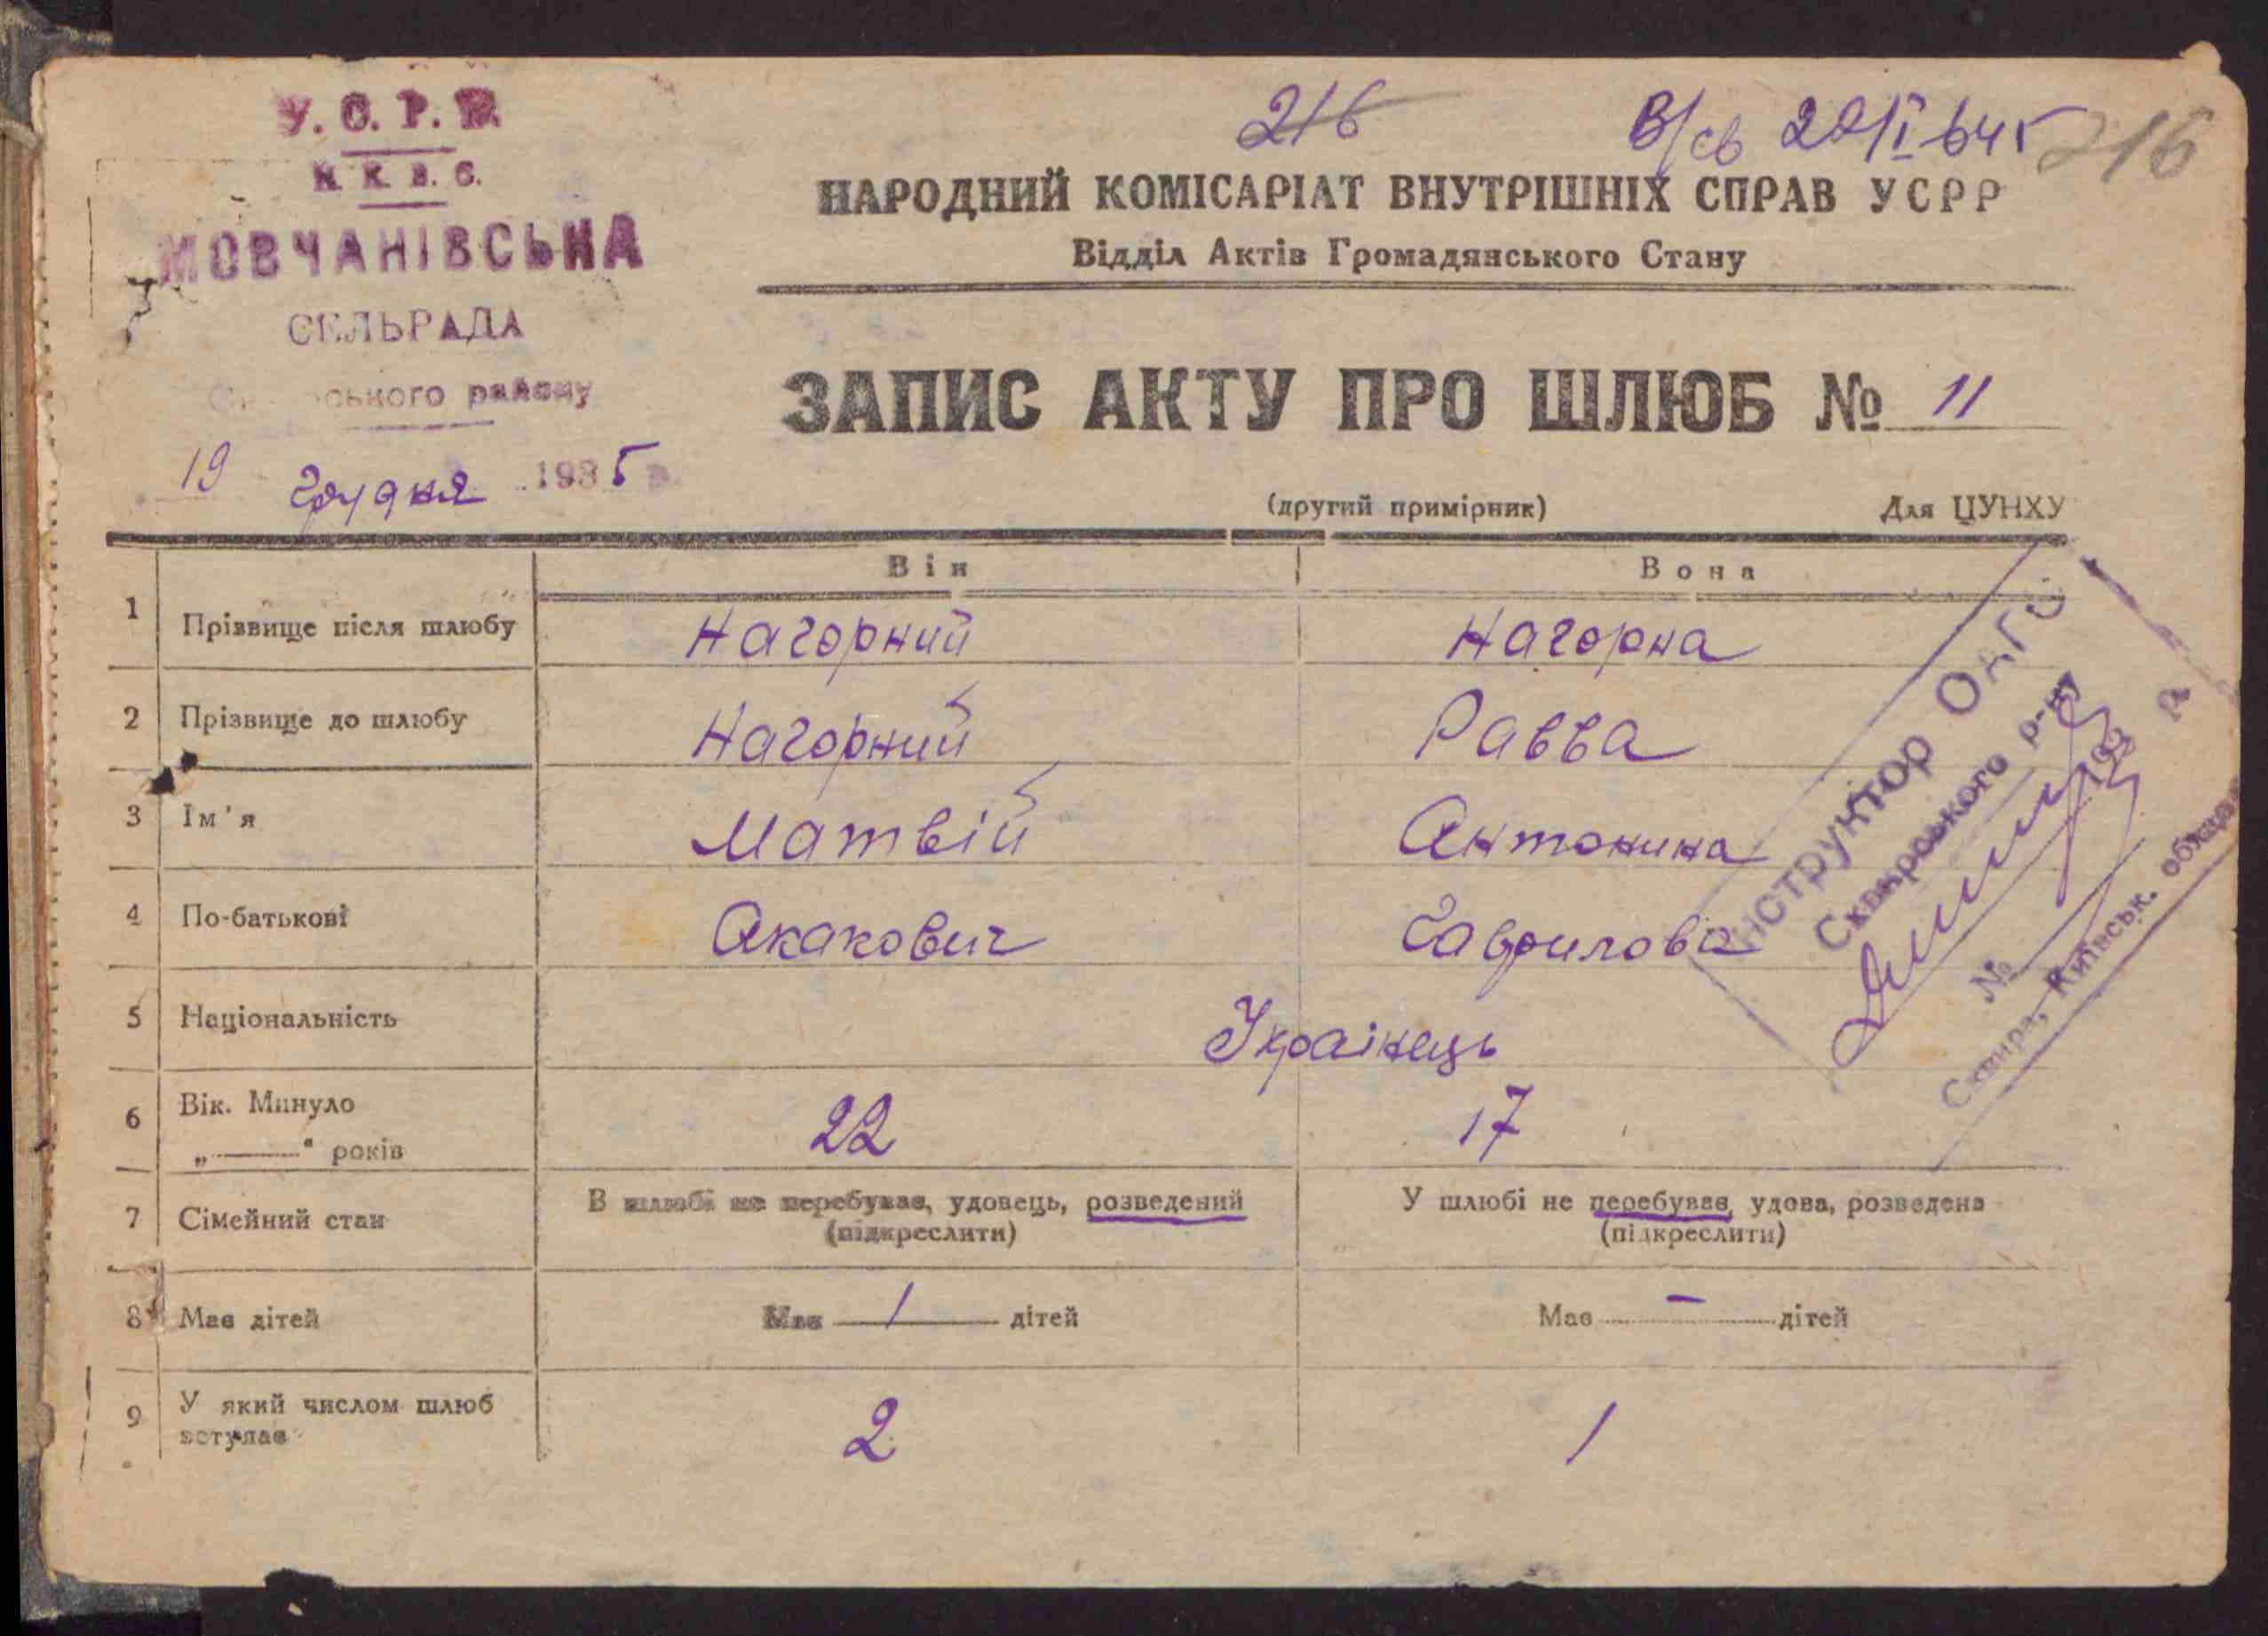 У. С. Р. Р.
Н. К. В. С.
МОВЧАНІВСЬКА
СЕЛЬРАДА
району
19 грудня 1935 р.
216
В/св 216
НАРОДНИЙ КОМІСАРІАТ ВНУТРІШНІХ СПРАВ УСРР
Відділ Актів Громадянського Стану
ЗАПИС АКТУ ПРО ШЛЮБ № 11
(другий примірник) Для ЦУНХУ
Він Вона
1 Прізвище після шлюбу Нагорний Нагорна
2 Прізвище до шлюбу Нагорний Равва
3 Ім'я Матвій Антонина
4 По-батькові Акакович Гаврилова
5 Національність Українець
6 Вік. Минуло 22 17
„——" років
7 Сімейний стан В шлюбі не перебував, удовець, розведений У шлюбі не перебував, удова, розведена
(підкреслити) (підкреслити)
8 Має дітей Має 1 дітей Має – дітей
9 У який числом шлюб 2 1
вступає
Інструктор ОАГС
Сквирського р-ну
193 р.
№
Сквира, Київськ. області